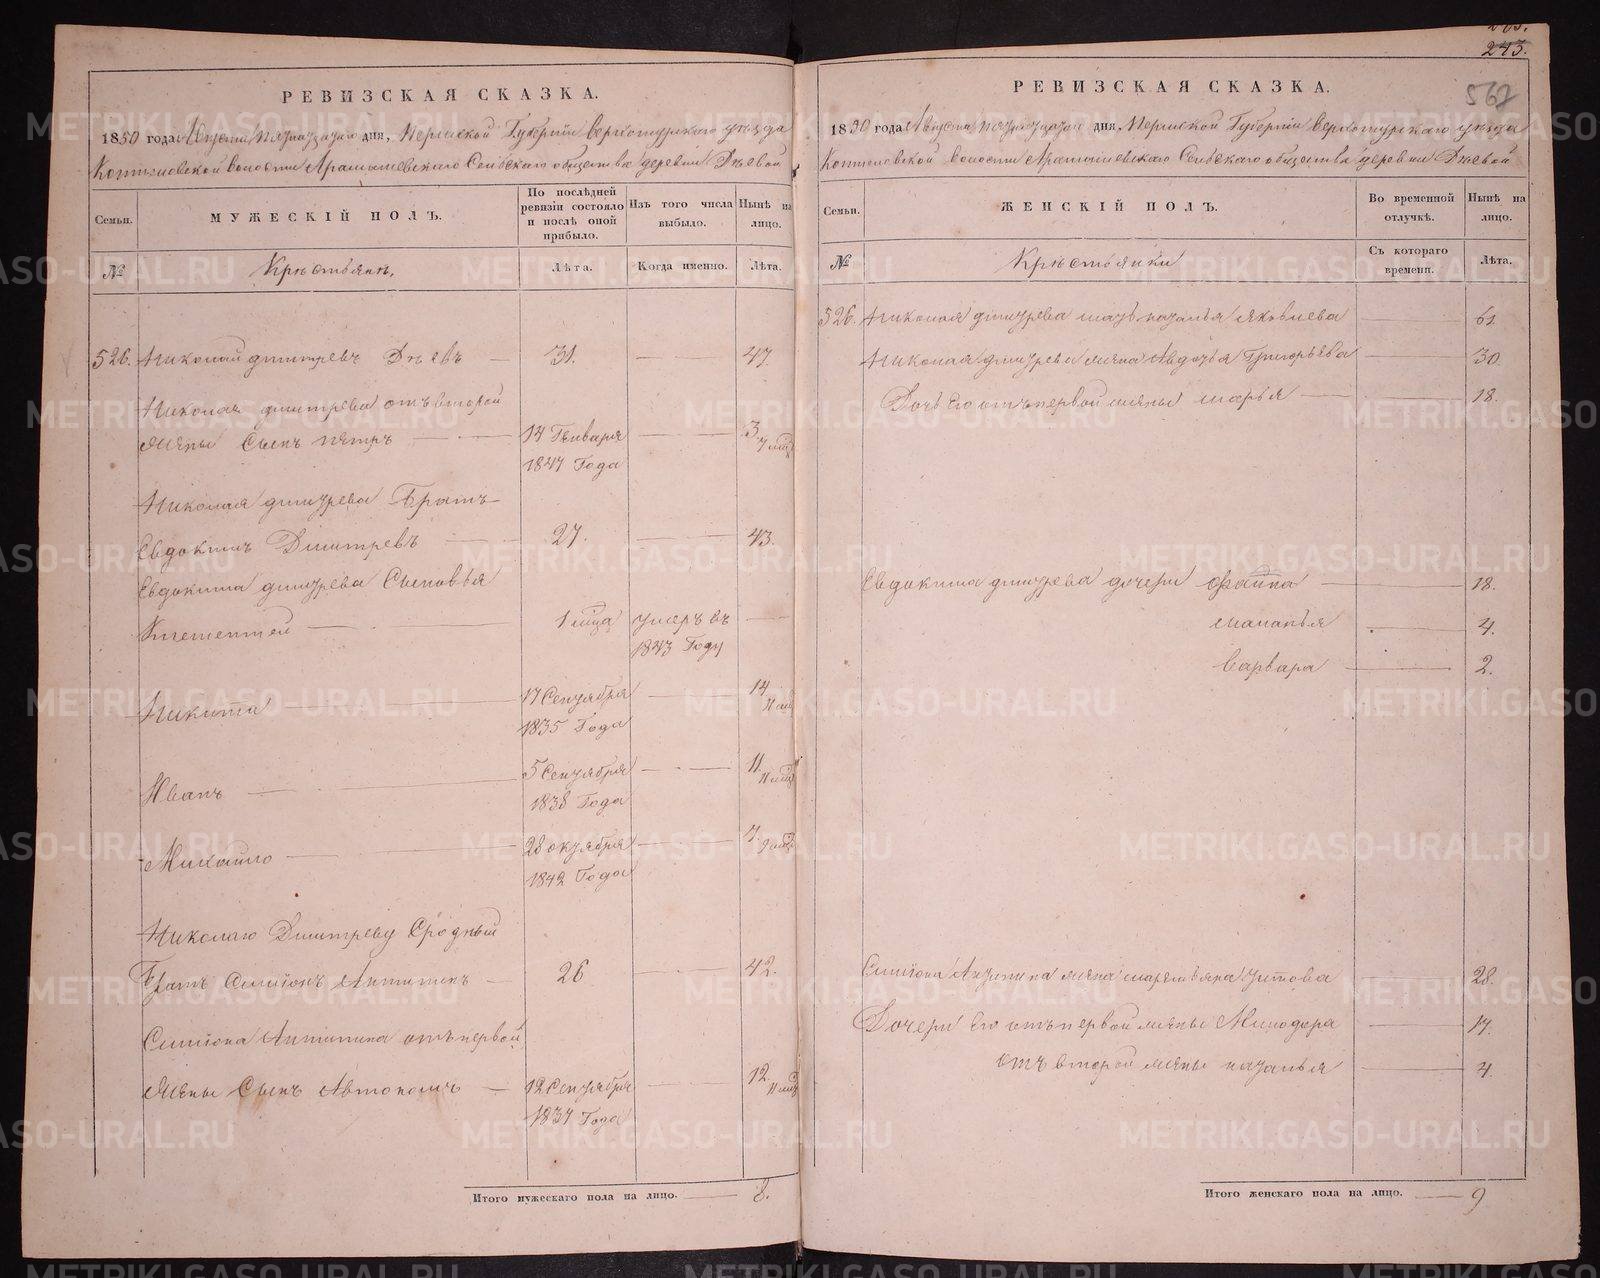 РЕВИЗСКАЯ СКАЗКА.
1850 года Августа пятнадцатаго дня, Пермской Губерніи верхотурскаго уѣзда
волости Сельскаго общества деревни
Семьи.
МУЖЕСКІЙ ПОЛЪ.
По послѣдней ревизіи состояло и послѣ оной прибыло.
Изъ того числа выбыло.
Нынѣ на лицо.
№
Крестьянъ,
Лѣта.
Когда именно.
Лѣта.
526. Николай дмитревъ — 31. — 47.
Николая дмитрева отъ второй
жены Сынъ петръ — 14 Генваря — 3
1847 Года
Николая дмитрева Братъ
Евдокимъ Дмитревъ — 27. — 43.
Евдокима дмитрева Сыновья
Климентей — 1 мца умеръ въ —
1843 Году
Никита — 17 Сентября — 14
1835 Года
Иванъ — 5 Сентября — 11
1838 Года
Михайло — 28 октября — 7
1842 Года
Николаю Дмитреву Сродный
Братъ Симіонъ Антипинъ — 26 — 42.
Симіона Антипина отъ первой
жены Сынъ Автономъ — 12 Сентября — 12
1837 Года
Итого мужескаго пола на лицо. — 8.
243.
567
РЕВИЗСКАЯ СКАЗКА.
1850 года Августа пятнадцатаго дня, Пермской Губерніи верхотурскаго уѣзда
волости Сельскаго общества деревни
Семьи.
ЖЕНСКІЙ ПОЛЪ.
Во временной отлучкѣ.
Нынѣ на лицо.
№
Крестьянки
Съ котораго времени.
Лѣта.
526. Николая дмитрева мать наталья Яковлева — 61
Николая дмитрева жена Авдотья Григорьева — 30
Дочь его отъ первой жены марья — 18.
Евдокима дмитрева дочери — 18.
маланья — 4.
варвара — 2.
Симіона Антипина жена титова — 28.
Дочери его отъ первой жены Минодора — 17.
отъ второй жены наталья — 4.
Итого женскаго пола на лицо. — 9
METRIKI.GASO-URAL.RU